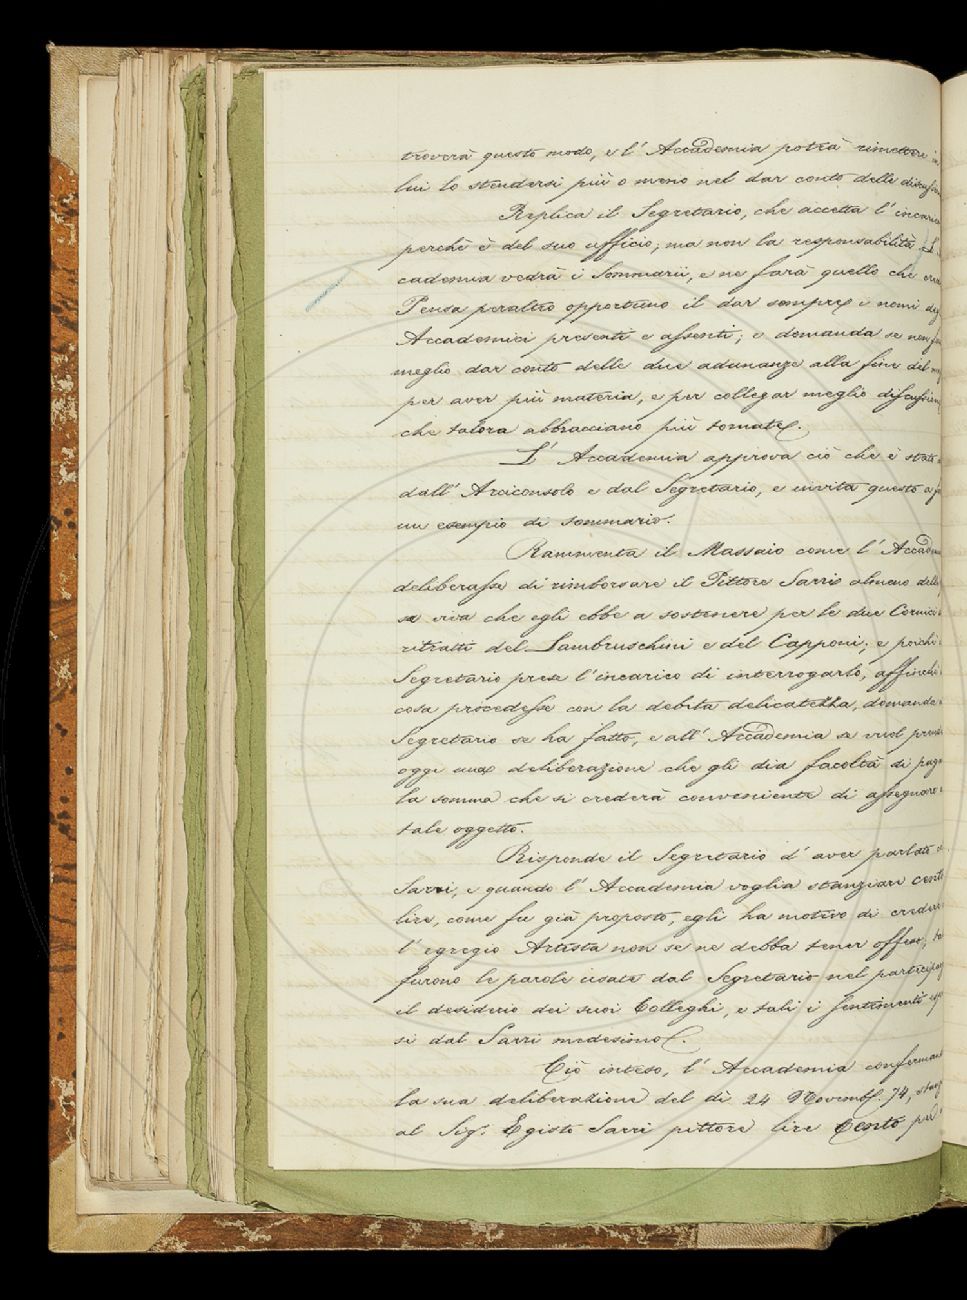 troverà questo modo, e l'Accademia potrà rimettere in
lui lo stendersi più o meno nel dar conto delle discussio
Replica il Segretario, che accetta l'incarico
perchè è del suo ufficio; ma non la responsabilità. L'
cademia vedrà i Sommarii, e ne farà quello che
Pensa peraltro opportuno il dar sempre i nomi de
Accademici presenti e assenti; e domanda se non
meglio dar conto delle due adunanze alla fine del
per aver più materia, e per collegar meglio discussioni
che talora abbracciano più tornate.
L'Accademia approva ciò che è stato
dall'Arciconsolo e dal Segretario, e invita questo a
un esempio di sommario.
Rammenta il Massaio come l'Accade
deliberasse di rimborsare il Pittore Sarri almeno della
sa viva che egli ebbe a sostenere per le due Cornici
ritratti del Lambruschini e del Capponi; e poichè
Segretario prese l'incarico di interrogarlo, affinchè
cosa procedesse con la debita delicatezza, domanda
Segretario se ha fatto, e all'Accademia se vuol prend
oggi una deliberazione che gli dia facoltà di pag
la somma che si crederà conveniente di assegnare
tale oggetto.
Risponde il Segretario d'aver parlato
Sarri, e quando l'Accademia voglia stanziare cento
lire, come fu già proposto, egli ha motivo di credere
l'egregio Artista non se ne debba tener offeso, ta
furono le parole usate dal Segretario nel partecipar
il desiderio dei suoi Colleghi, e tali i sentimenti
si dal Sarri medesimo.
Ciò inteso, l'Accademia conferman
la sua deliberazione del dì 24 Novembre 74, stan
al Sig. Egisto Sarri pittore lire Cento per